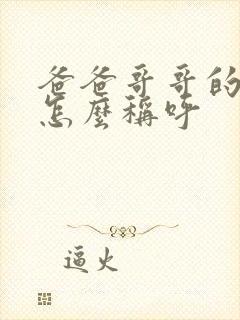 爸爸哥哥的
怎麼稱呼
逼火